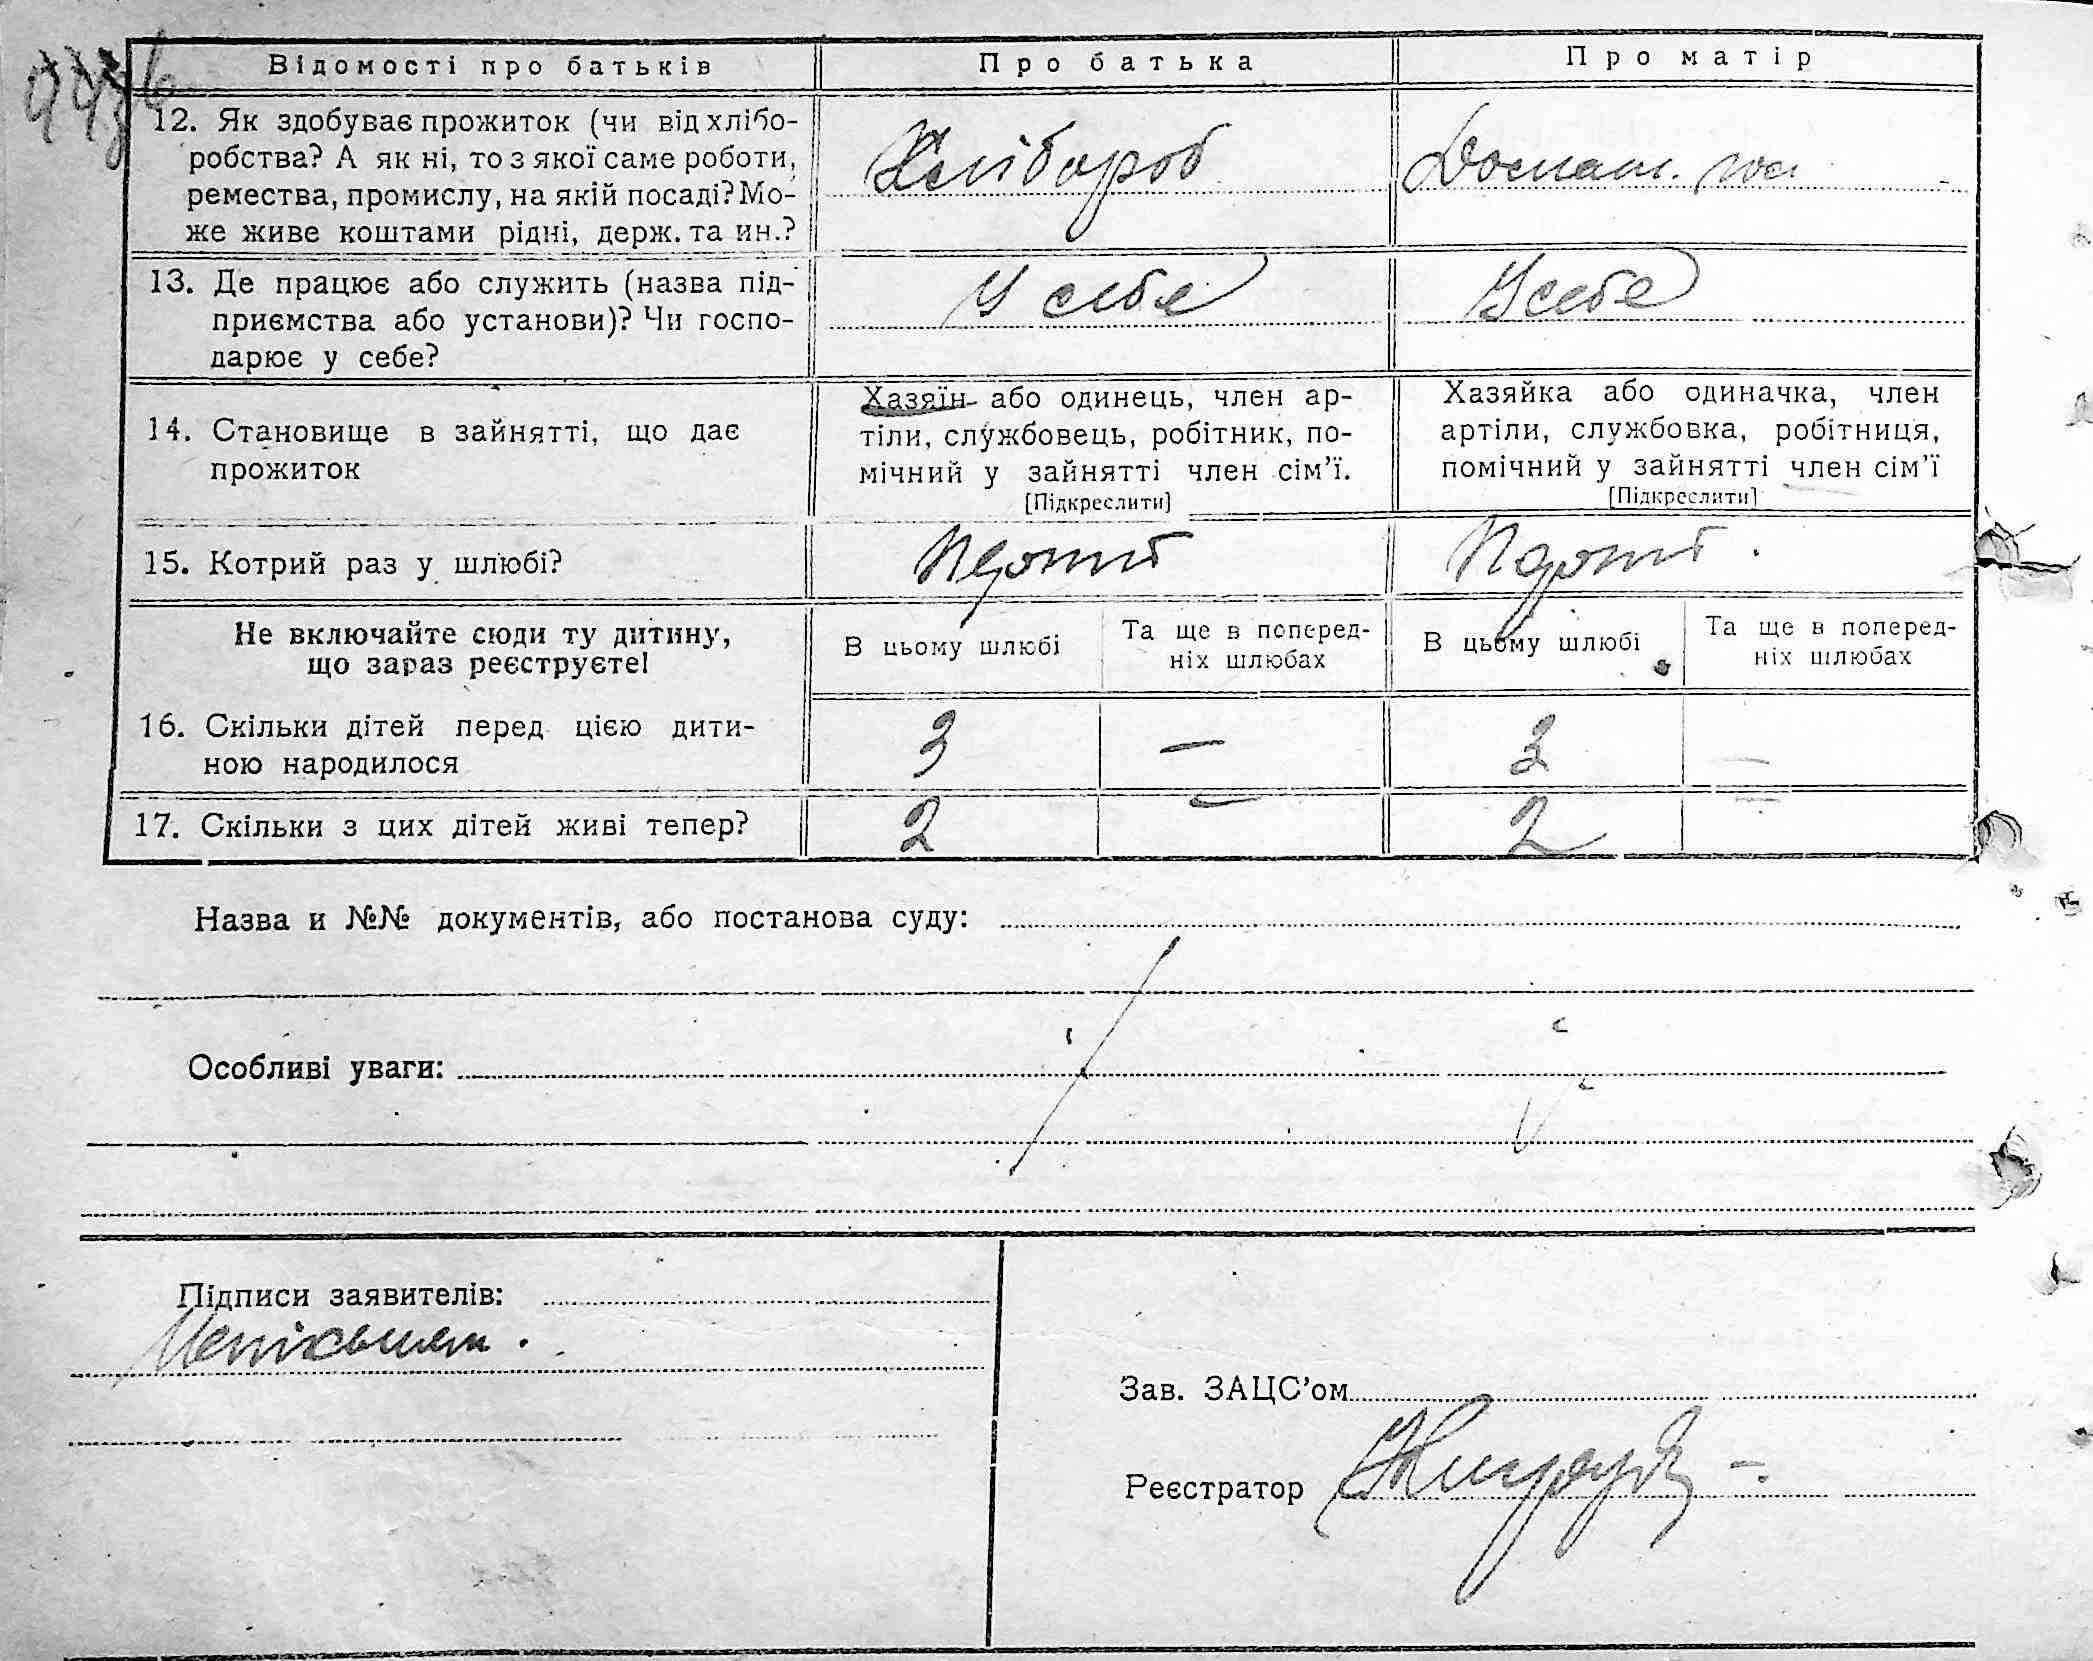 Відомості про батьків
Про батька
Про матір
12. Як здобуває прожиток (чи від хлібо-
робства? А як ні, то з якої саме роботи,
ремества, промислу, на якій посаді? Мо-
же живе коштами рідні, держ. та ин.?
Хлібороб
Домаш.
13. Де працює або служить (назва під-
приємства або установи)? Чи госпо-
дарює у себе?
У себе
У себе
14. Становище в зайнятті, що дає
прожиток
Хазяїн або одинець, член ар-
тіли, службовець, робітник, по-
мічний у зайнятті член сім'ї.
[Підкреслити]
Хазяйка або одиначка, член
артіли, службовка, робітниця,
помічний у зайнятті член сім'ї
[Підкреслити]
15. Котрий раз у шлюбі?
Не включайте сюди ту дитину,
що зараз реєструєте!
В цьому шлюбі
Та ще в поперед-
ніх шлюбах
В цьому шлюбі
Та ще в поперед-
ніх шлюбах
16. Скільки дітей перед цією дити-
ною народилося
3 — 3 —
17. Скільки з цих дітей живі тепер?
2 — 2 —
Назва и №№ документів, або постанова суду:
Особливі уваги:
Підписи заявителів:
Зав. ЗАЦС'ом
Реєстратор